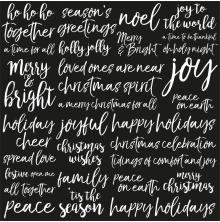 ho ho ho
together
a time for all
season's
greetings
holly jolly
noel
Merry
& Bright
joy to
the world
a time to be thankful
oh holy night
Merry
&
bright
loved ones are near
christmas spirit
a merry christmas for all
joy
peace
on earth
holiday
cheer
spread love
festive
all together
peace
joyful
christmas
wishes
family
'tis the
season
happy holidays
christmas celebration
tidings of comfort and joy
peace
on earth
merry
christmas
happy holidays